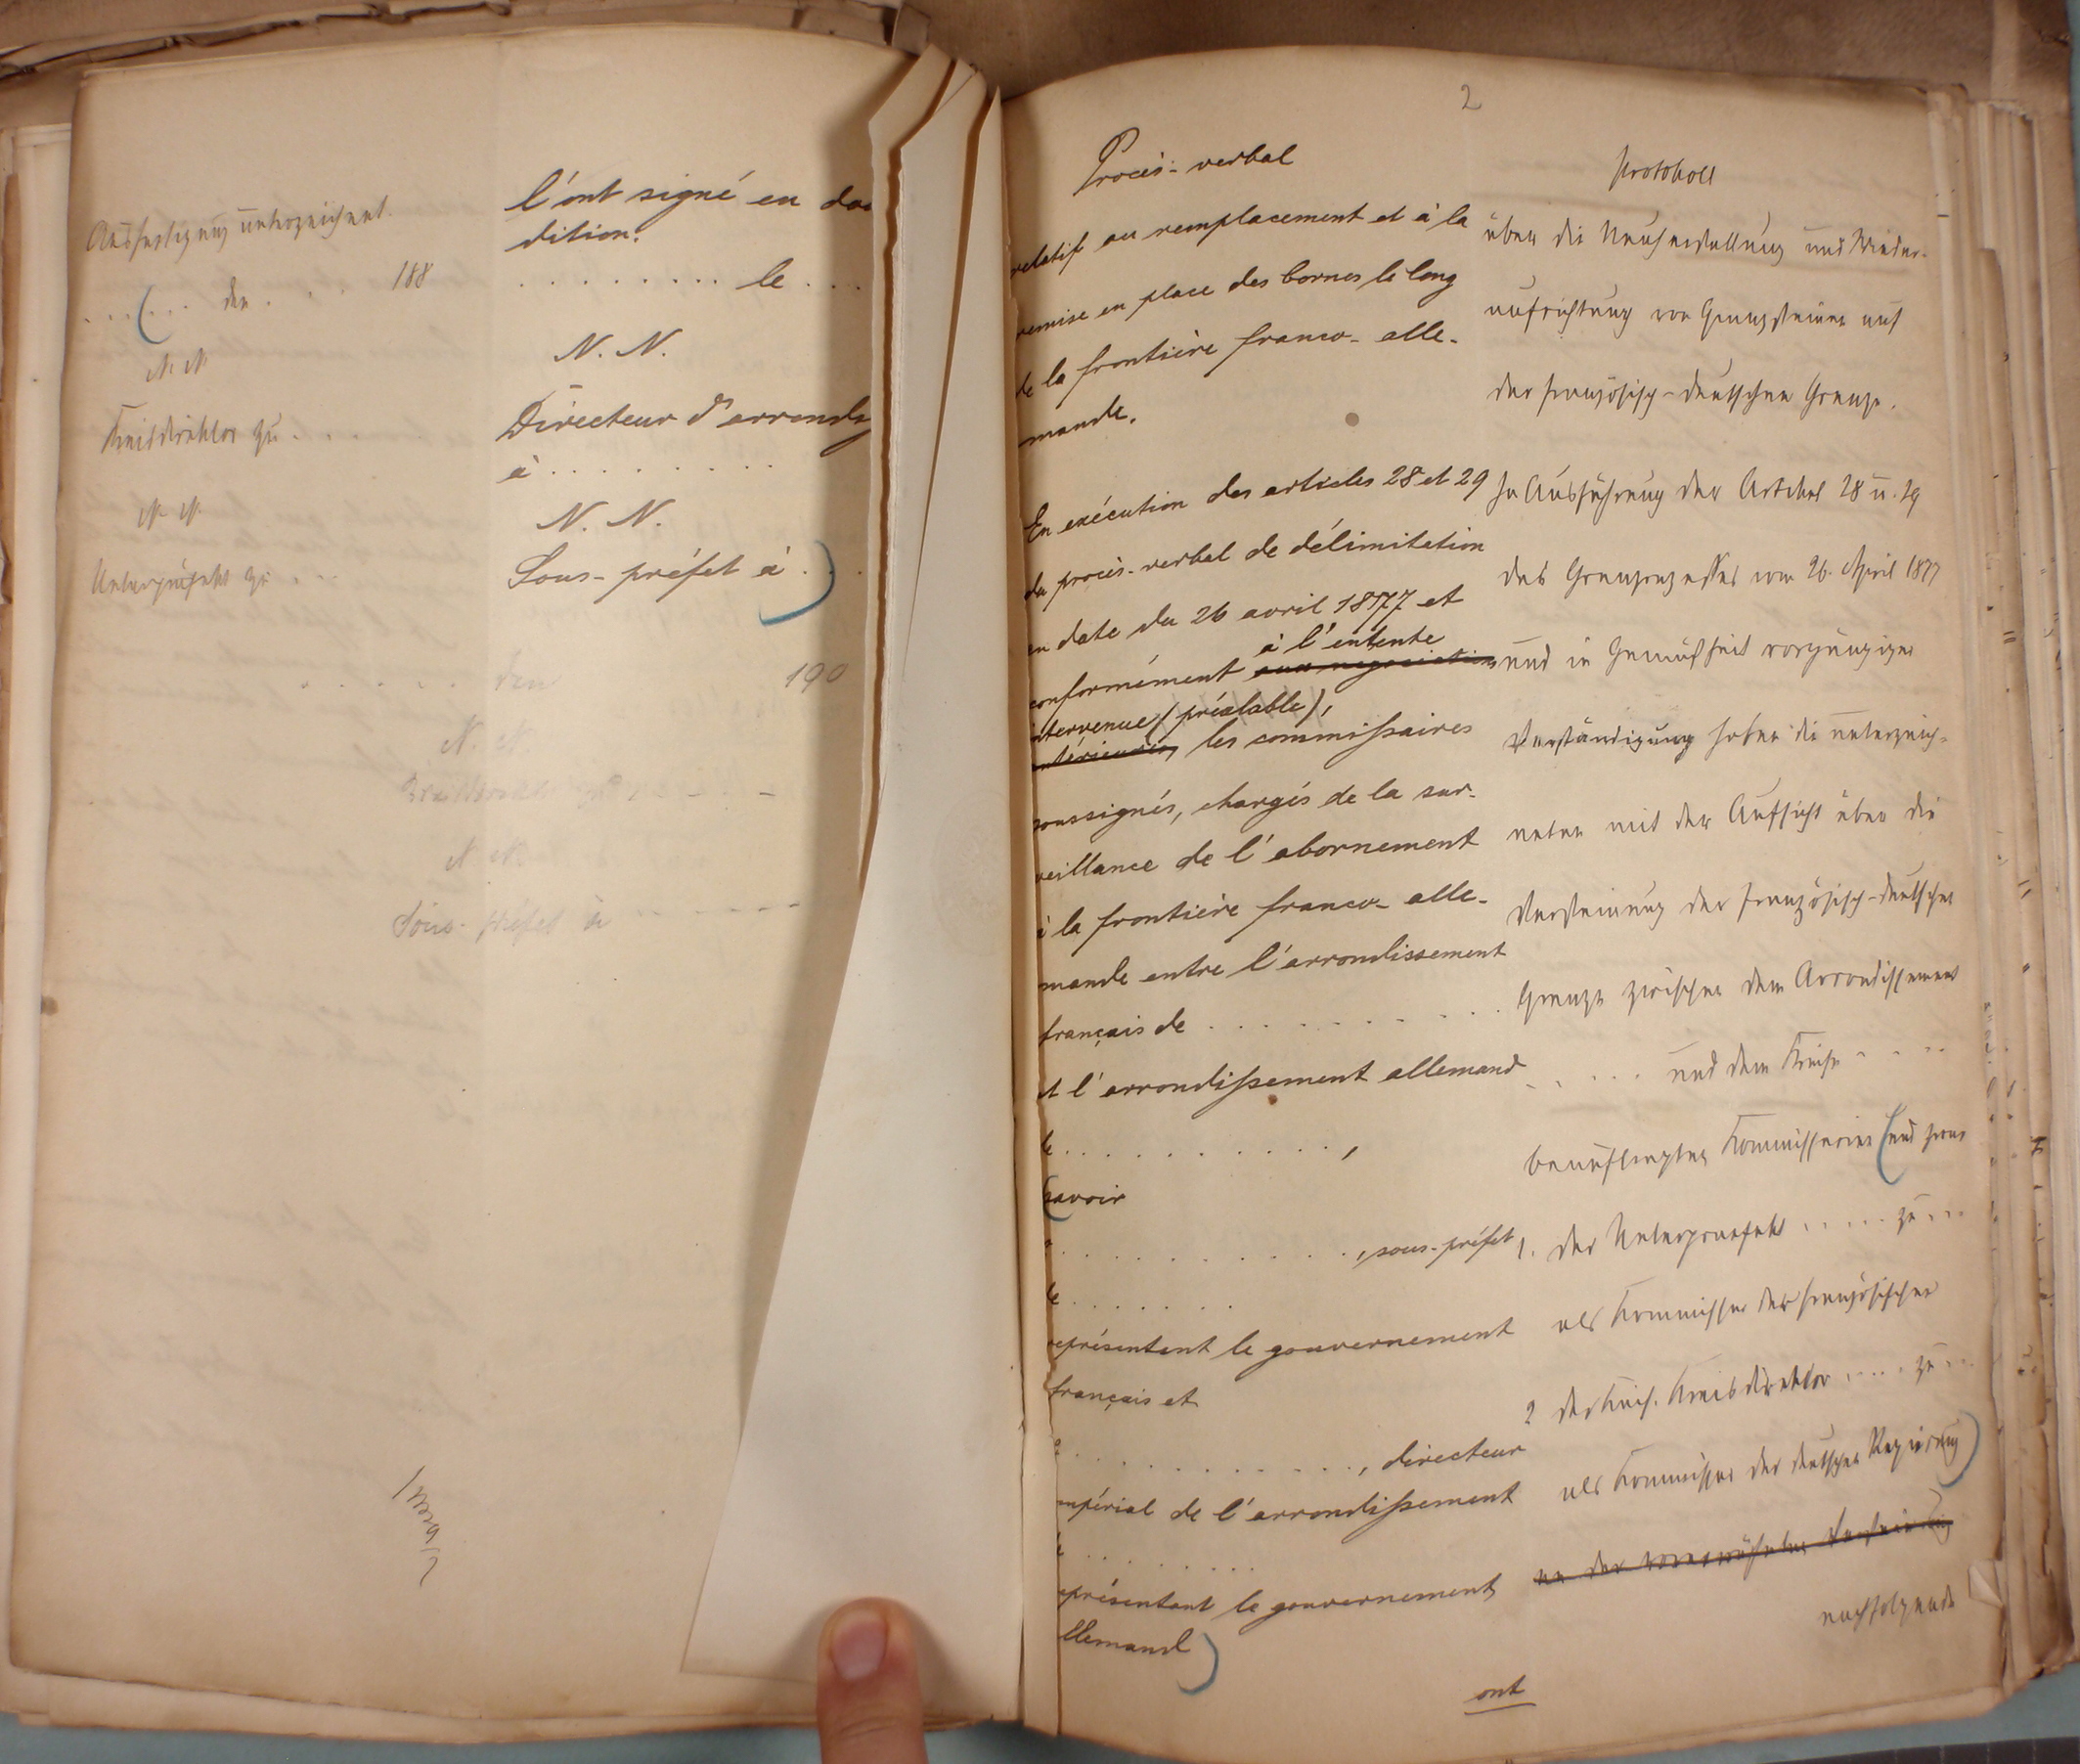 Ausfertigung unterzeichnet.
. . . . . den . . . . 188
N. N.
Kreisdirektor zu . . . .
N. N.
Unterpräfekt zu . . .
l'ont signé en dou
dition.
. . . . . . . . . le . . .
N. N.
Directeur d'arronds
à . . . . . . . . .
N. N.
Sous-préfet à . .
. . . . . . den 190
N. N.
Kreisdirektor zu . - - -
N. N.
Sous-préfet à - - - - - -
2
Procès-verbal
relatif au remplacement et à la
remise en place des bornes le long
de la frontière franco-alle-
mande.
En exécution des articles 28 et 29
du procès-verbal de délimitation
en date du 26 avril 1877 et
à l'entente
conformément aux négociations
intervenue (préalable),
antérieures, les commissaires
soussignés, chargés de la sur-
veillance de l'abornement
à la frontière franco-alle-
mande entre l'arrondissement
français de . . . . . . . . . . .
et l'arrondissement allemand
de . . . . . . . . . . . ,
(savoir
. . . . . . . . . . . . , sous-préfet
de . . . . . . .
représentant le gouvernement
français et
. . . . . . . . . . . . , directeur
impérial de l'arrondissement
de . . . . . . . .
représentant le gouvernement
allemand)
ont
Protokoll
über die Neuherstellung und Wieder-
aufrichtung von Grenzsteinen auf
der französisch-deutschen Grenze.
In Ausführung der Artikel 28 u. 29
des Grenzrezesses vom 26. April 1877
und in Gemäßheit vorgängiger
Verständigung haben die unterzeich-
neten mit der Aufsicht über die
Versteinung der französisch-deutschen
Grenze zwischen dem Arrondissement
. . . . . und dem Kreise . . . .
beauftragten Kommissarien (und zwar
1. der Unterpraefekt . . . . . zu . . .
als Kommissar der französischen
2 der Kais. Kreisdirektor . . . . zu . . .
als Kommissar der deutschen Regierung)
an der vorerwähnten Versteinung
nachfolgende